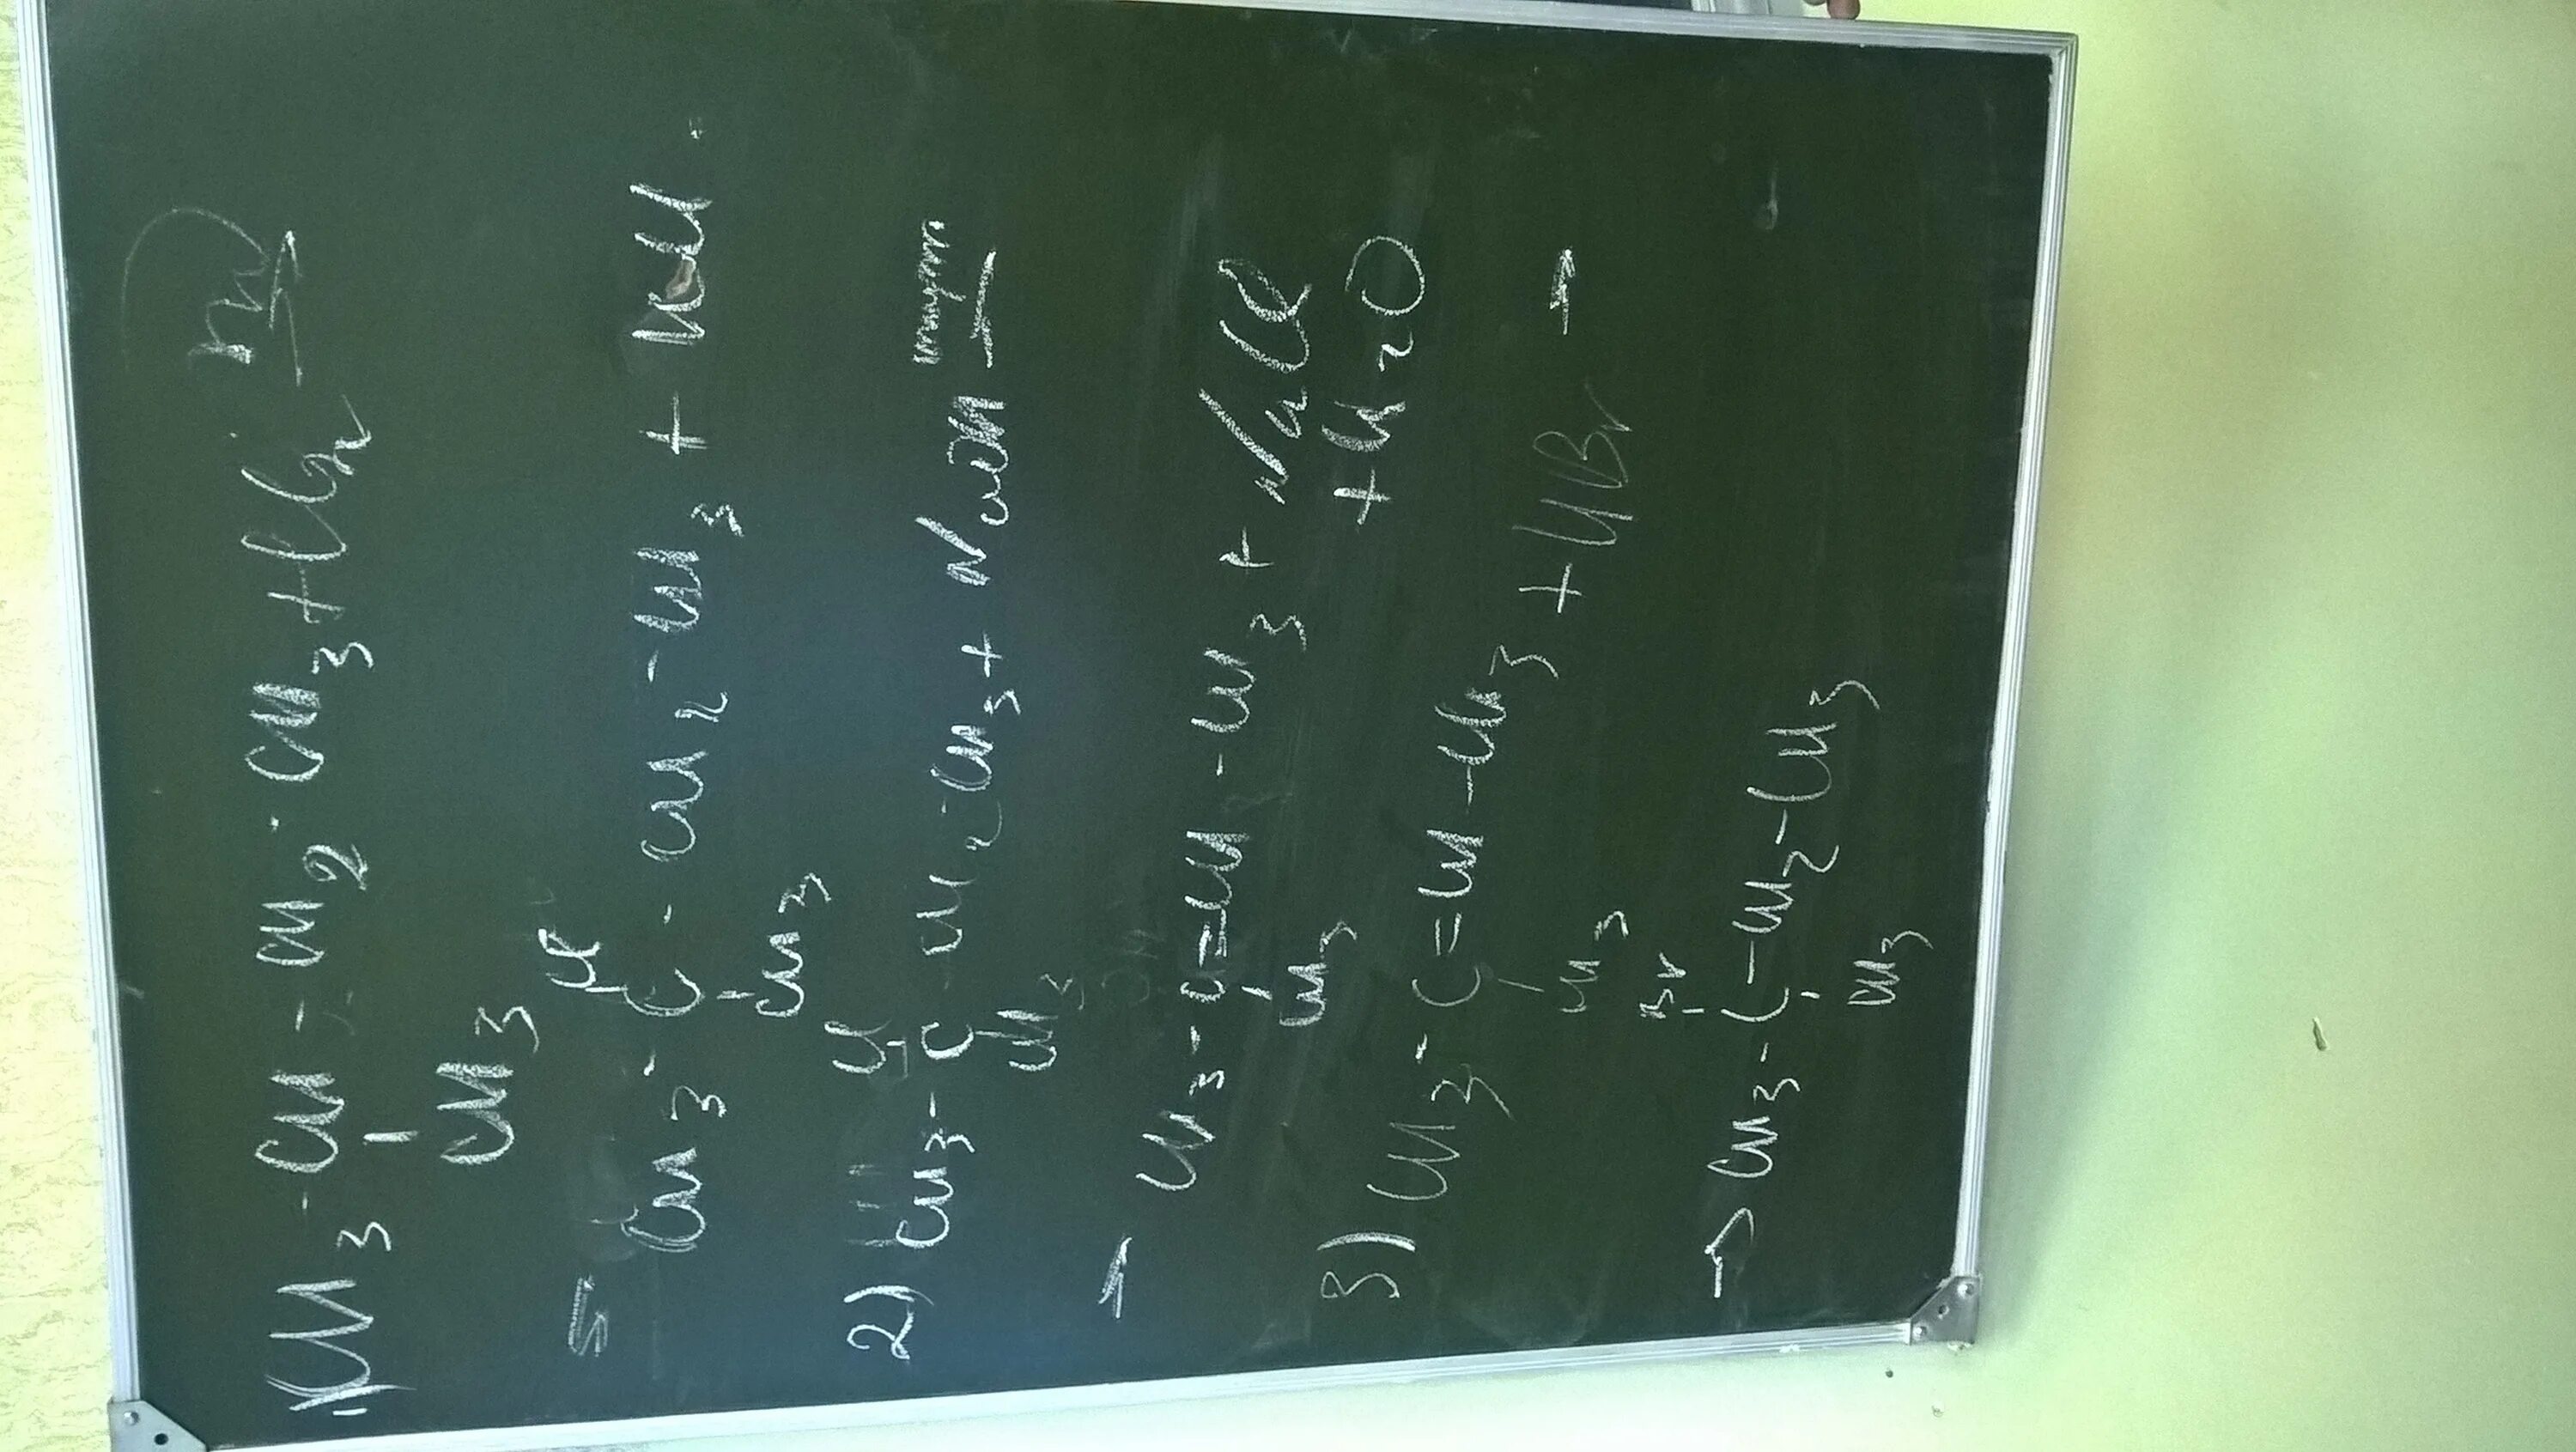 1) CH3 - CH - CH2 - CH3 + Cl2 hν→
CH3
Cl
= CH3 - C - CH2 - CH3 + HCl
CH3
Cl
2) CH3 - C - CH2 - CH3 + NaOH спирт→
CH3
→ CH3 - C = CH - CH3 + NaCl
CH3 + H2O
3) CH3 - C = CH - CH3 + HBr →
CH3
Br
→ CH3 - C - CH2 - CH3
CH3